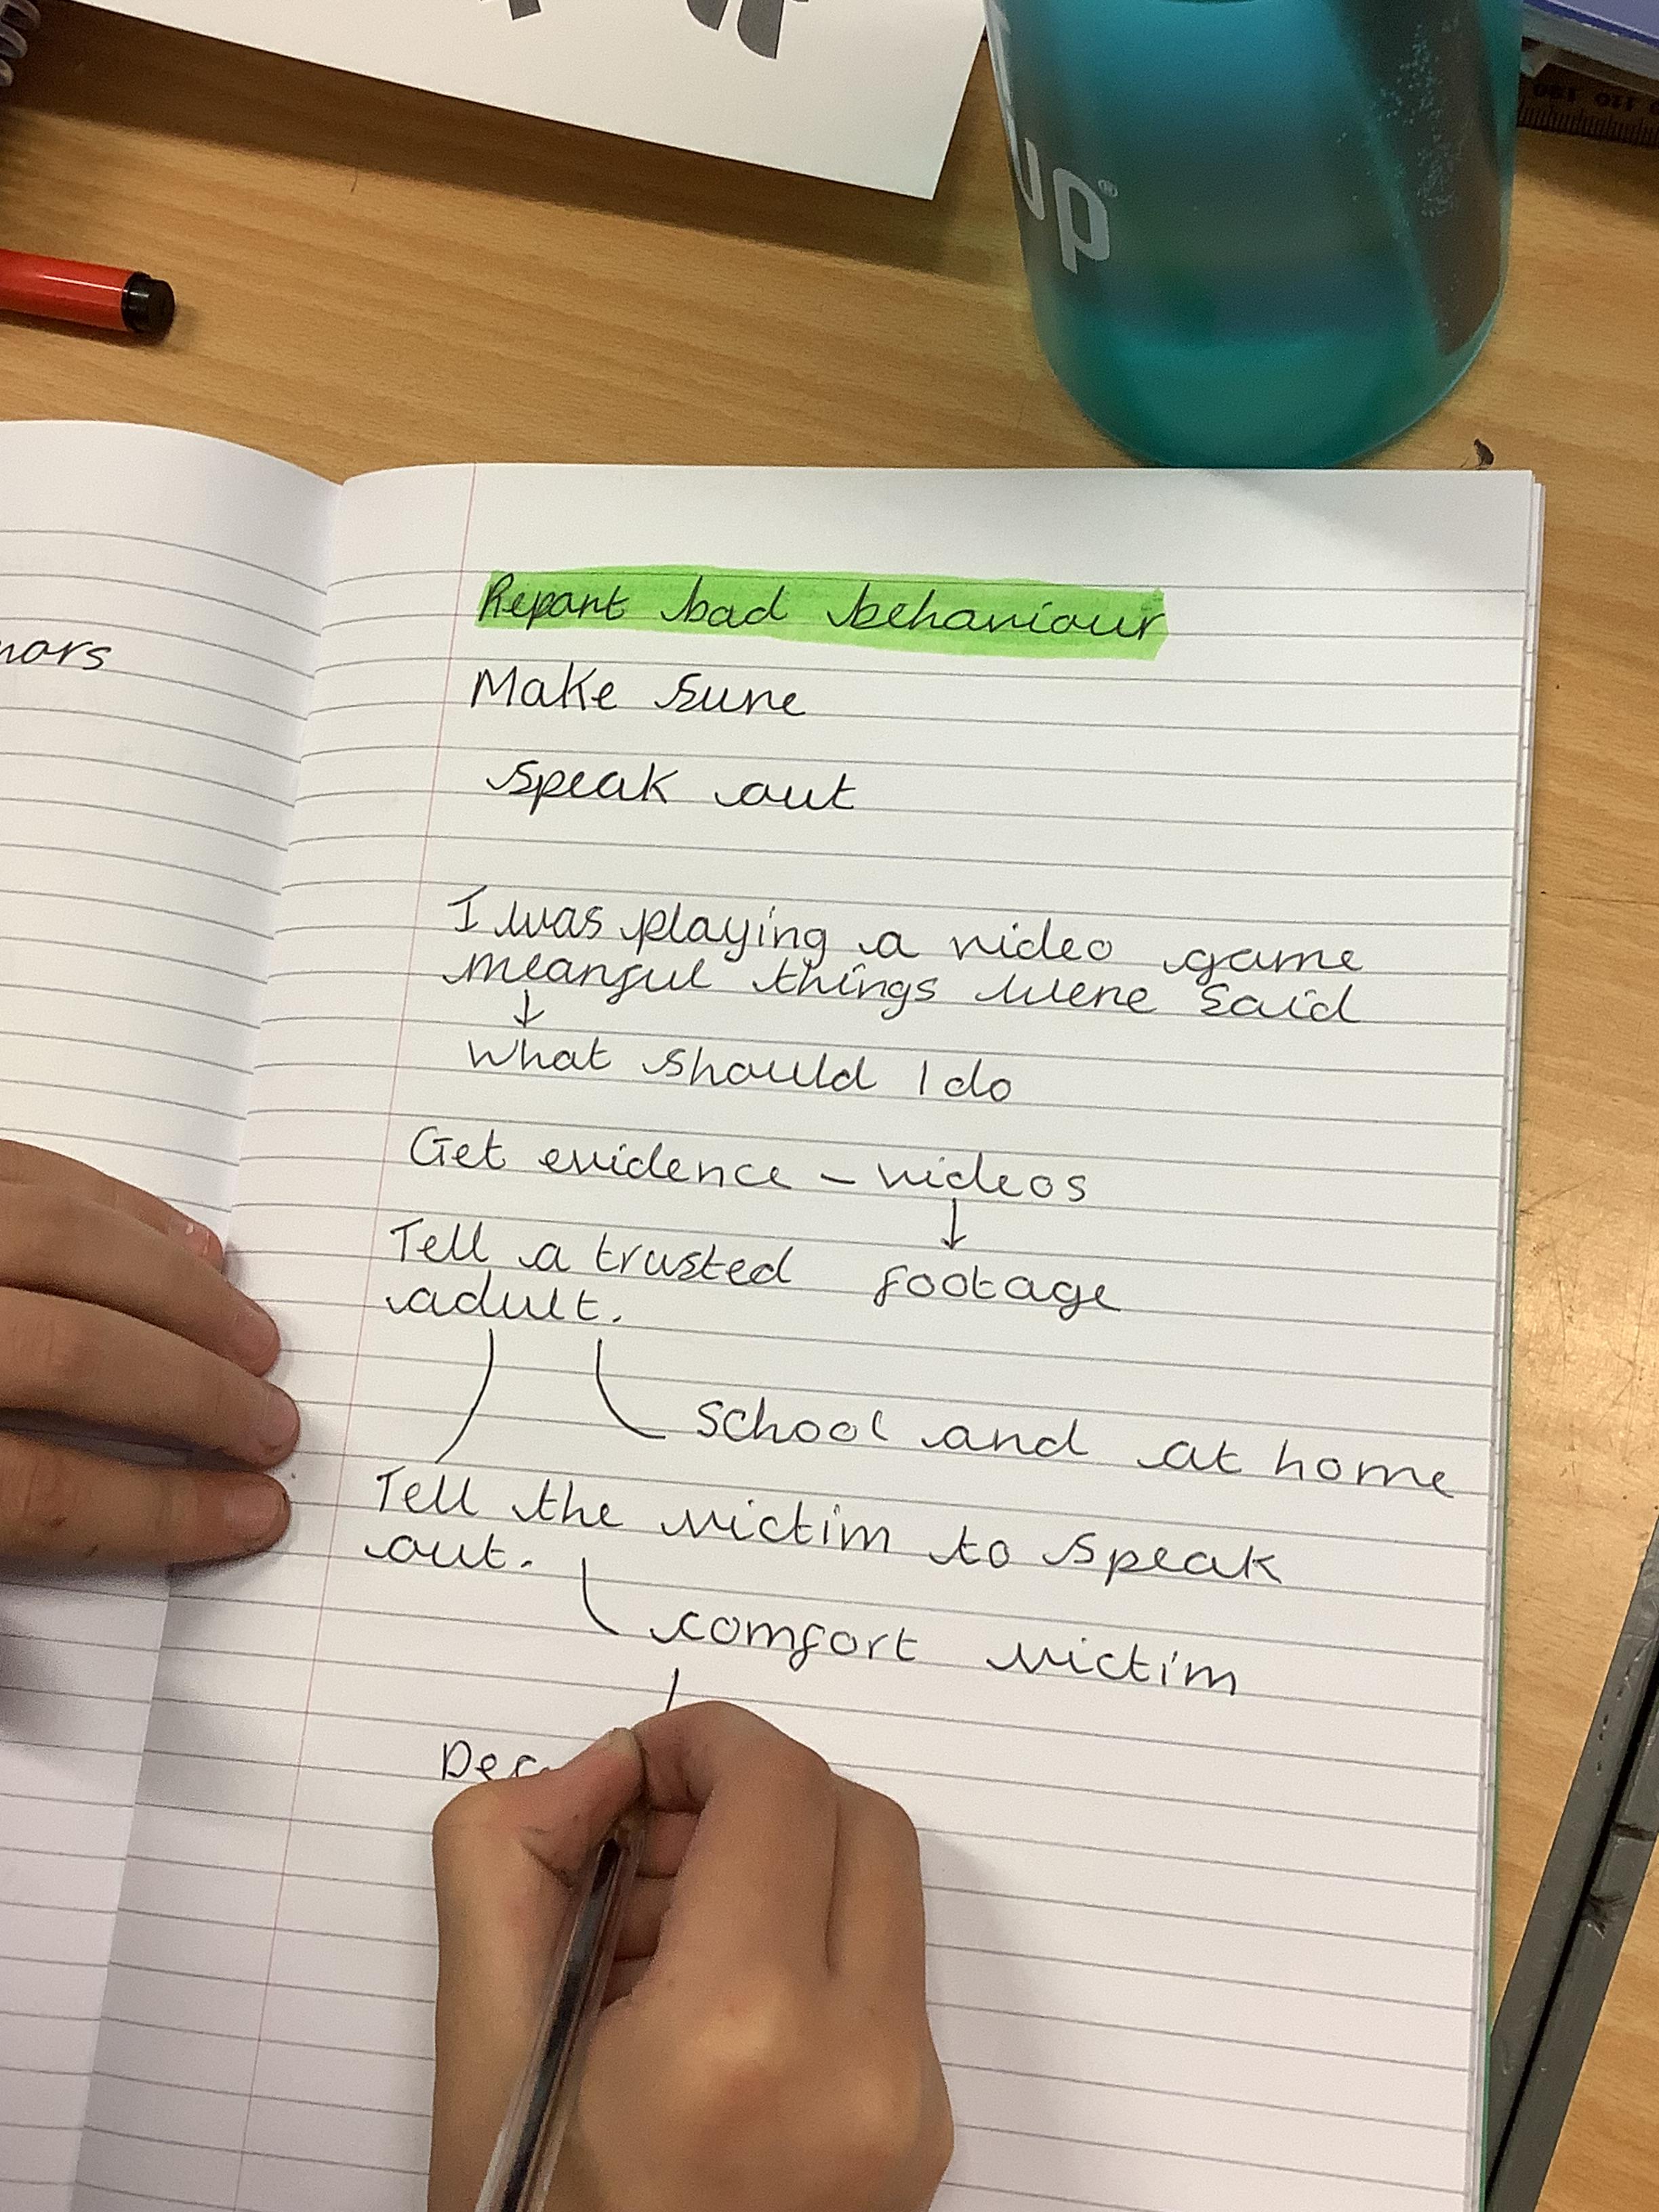 up®
120 110
nors
Report bad behaviour
Make sure
speak out
I was playing a video game
meanful things were said
↓
What should I do
Get evidence – videos
↓
Tell a trusted footage
adult.
school and at home
Tell the victim to speak
out.
comfort victim